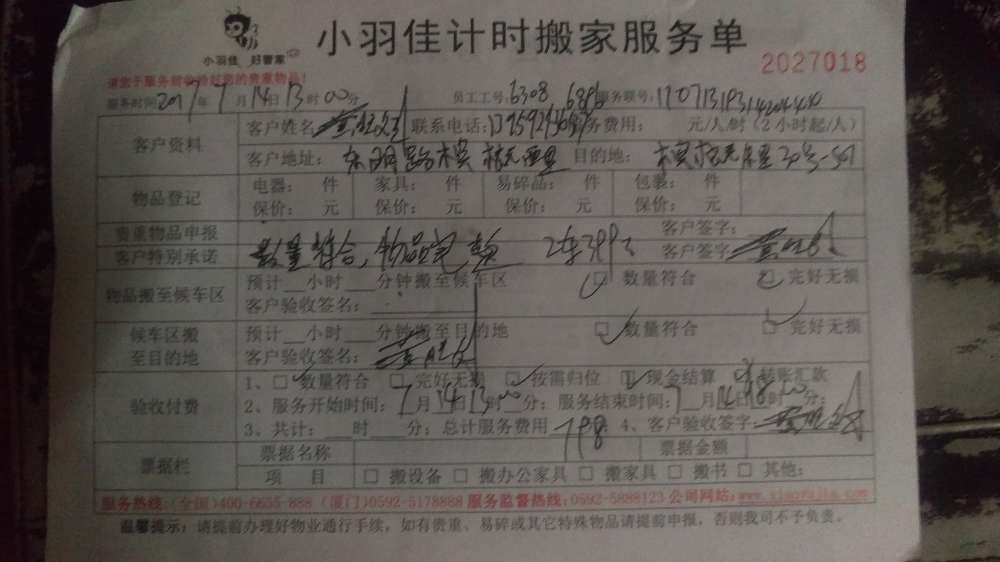 小羽佳 好管家
小羽佳计时搬家服务单
2027018
请您于服务前收检好您的贵重物品!
服务时间2017年7月14日13时00分 员工工号:6308 6896 服务联号:
客户资料 客户姓名: 联系电话: 服务费用: 元/人/时(2小时起/人)
客户地址: 目的地:
物品登记 电器: 件 家具: 件 易碎品: 件 包裹: 件
保价: 元 保价: 元 保价: 元 保价: 元
贵重物品申报 客户签字:
客户特别承诺 数量符合,物品完 客户签字:
物品搬至候车区 预计__小时___分钟搬至候车区 □ 数量符合 □ 完好无损
客户验收签名:
候车区搬至目的地 预计__小时___分钟搬至目的地 □ 数量符合 □ 完好无损
客户验收签名:
验收付费 1、□ 数量符合 □ 完好无损 □ 按需归位 □ 现金结算 □ 转账汇款
2、服务开始时间:7月14日13时00分;服务结束时间:7月14日18时00分;
3、共计:___时___分;总计服务费用 798 4、客户验收签字:
票据栏 票据名称 票据金额
项 目 □ 搬设备 □ 搬办公家具 □ 搬家具 □ 搬书 □ 其他:
服务热线:(全国)400-6655-888 (厦门)0592-5178888 服务监督热线:0592-5888123 公司网站:www.xiaoyujia.com
温馨提示:请提前办理好物业通行手续,如有贵重、易碎或其它特殊物品请提前申报,否则我司不予负责。